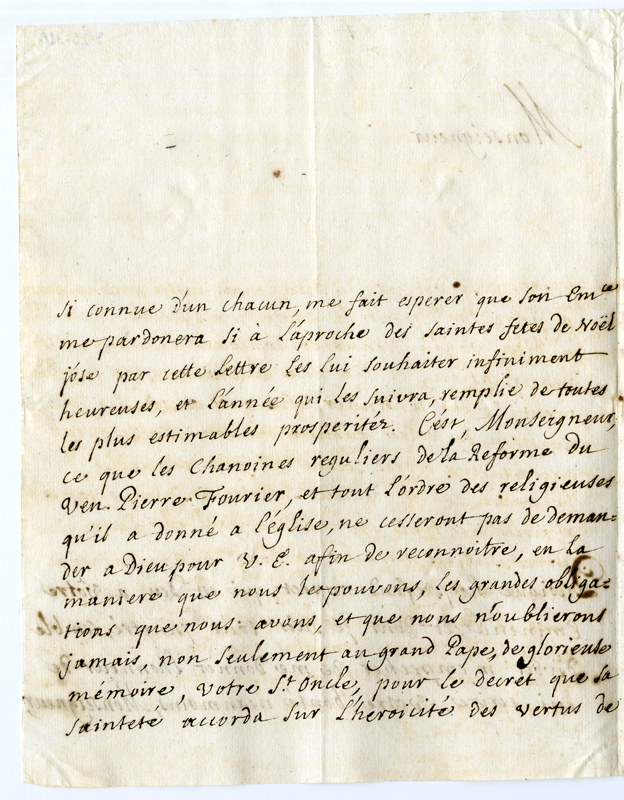 si connue d'un chacun, me fait esperer que son Em.ce
me pardonera si à l'aproche des saintes fetes de Noël
j'ose par cette lettre les lui souhaiter infiniment
heureuses, et l'année qui les suivra, remplie de toutes
les plus estimables prosperitéz. C'ést, Monseigneur,
ce que les Chanoines reguliers de la Reforme du
Ven. Pierre Fourier, et tout l'ordre des religieuses
qu'il a donné a l'église, ne cesseront pas de deman=
der a Dieu pour V. E. afin de reconnoitre, en la
maniere que nous le pouvons, les grandes obliga=
tions que nous avons, et que nous n'oublierons
jamais, non seulement au grand Pape, de glorieuse
mémoire, votre S.t Oncle, pour le decret que sa
sainteté accorda sur l'heroicité des vertus de